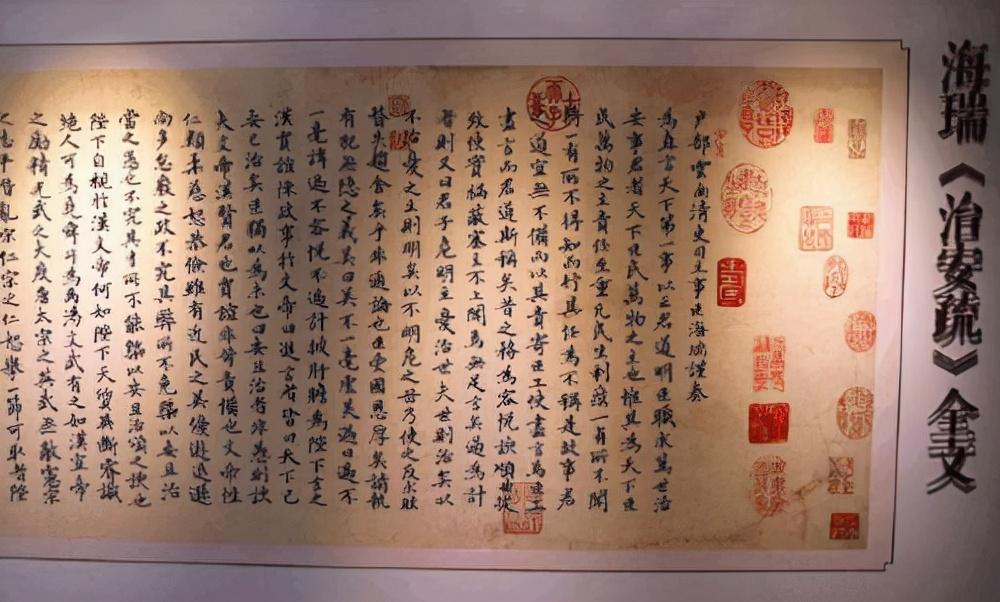 海瑞《治安疏》全文
户部雲南清吏司主事臣海瑞謹奏
為直言天下第一事以正君道明臣職求萬世治
安事君者天下臣民萬物之主也惟其為天下臣
民萬物之主責任至重凡民生利瘼一有所不聞
將一有所不得知而行其任為不稱是故事君
之道宜無不備而以其責寄臣工使盡言焉臣工
盡言而君道斯稱矣昔之務為容悅諛順曲從
致使實禍蔽塞主不上聞焉無足言矣過為計
者則又曰君子危明主憂治世夫世則治矣以
不治憂之主則明矣以不明危之毋乃使之反求眩
瞀失趨舍矣乎非通論也臣受國恩厚矣請執
有犯無隱之義美曰美不一毫虛美過曰過不
一毫諱過不容悅不過計披肝膽為陛下言之
漢賈誼陳政事於文帝曰進言者皆曰天下已
安已治矣臣獨以為未也曰安且治者非愚則諛
夫文帝漢賢君也賈誼非苛責備也文帝性
仁類柔慈恕恭儉雖有近民之美優遊退遜
尚多怠廢之政不究其弊所不免槩以安且治
當之愚也不究其才所不能槩以安且治頌之諛也
陛下自視於漢文帝何如陛下天資英斷睿識
絕人可為堯舜可為禹湯文武下之如漢宣帝
之勵精光武之大度唐太宗之英武無敵憲宗
之志平僭亂宋仁宗之仁恕舉一節可取者陛